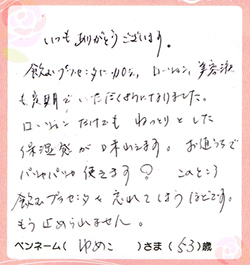 いつもありがとうございます。
飲むプラセンタに加え、ローション、美容液
も定期でいただくようになりました。
ローションだけでもねっとりとした
保湿感が味わえます。お値うちで
バシャバシャ使えます？このところ
飲むプラセンタを忘れてしまうほどです。
もう止められません。
ペンネーム( ゆめこ )さま( 53 )歳